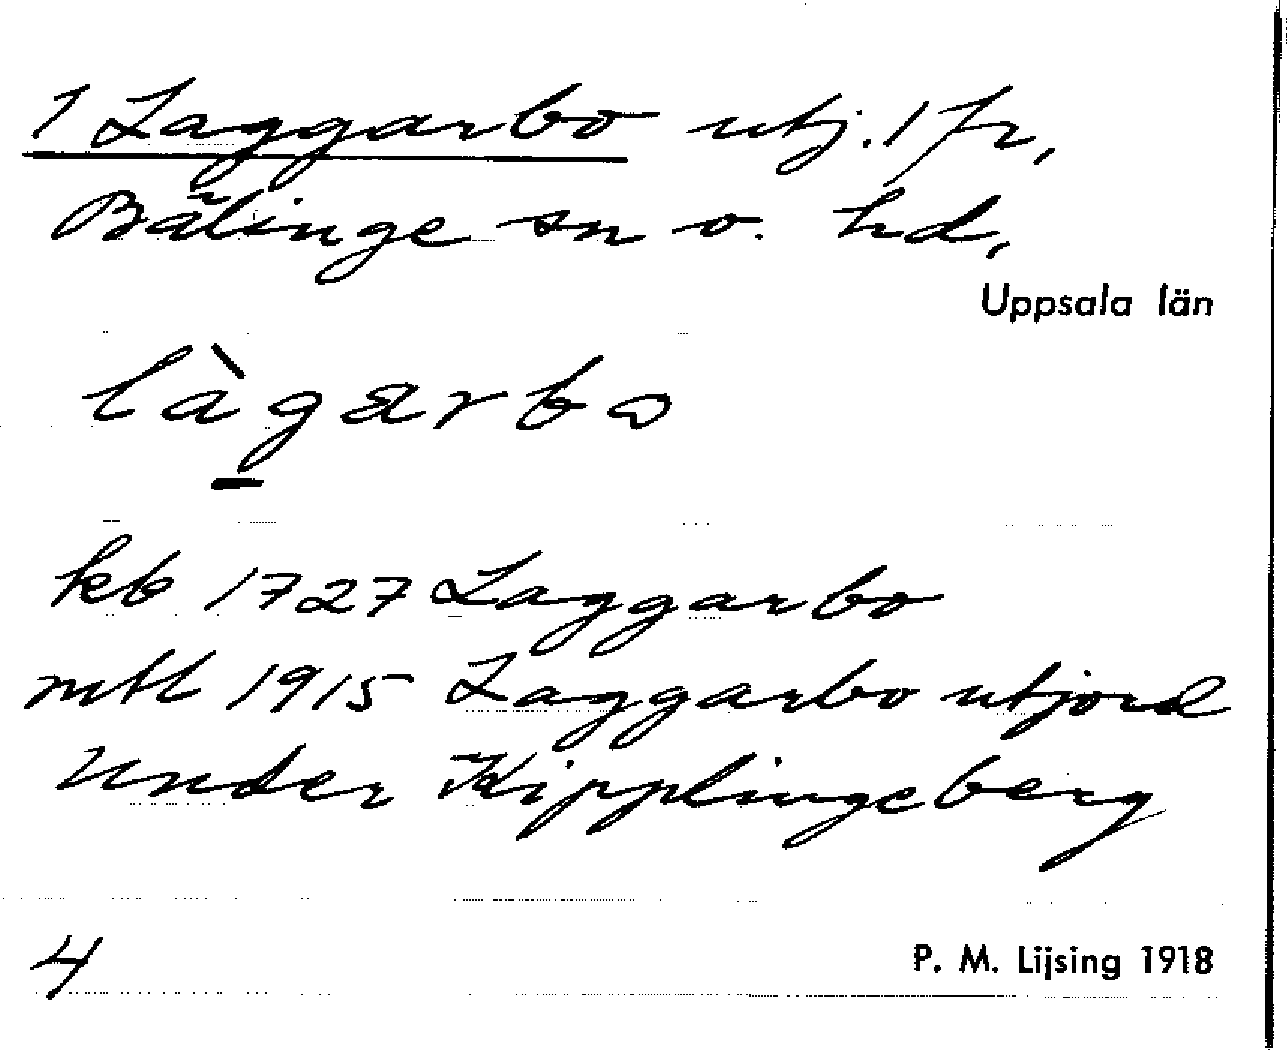 1 Laggarbo utj. 1 fr,
Bälinge sn o. hd,
Uppsala län
làgarbo
kb 1727 Laggarbo
mtl 1915 Laggarbo utjord
under Kipplingeberg
4
P. M. Lijsing 1918